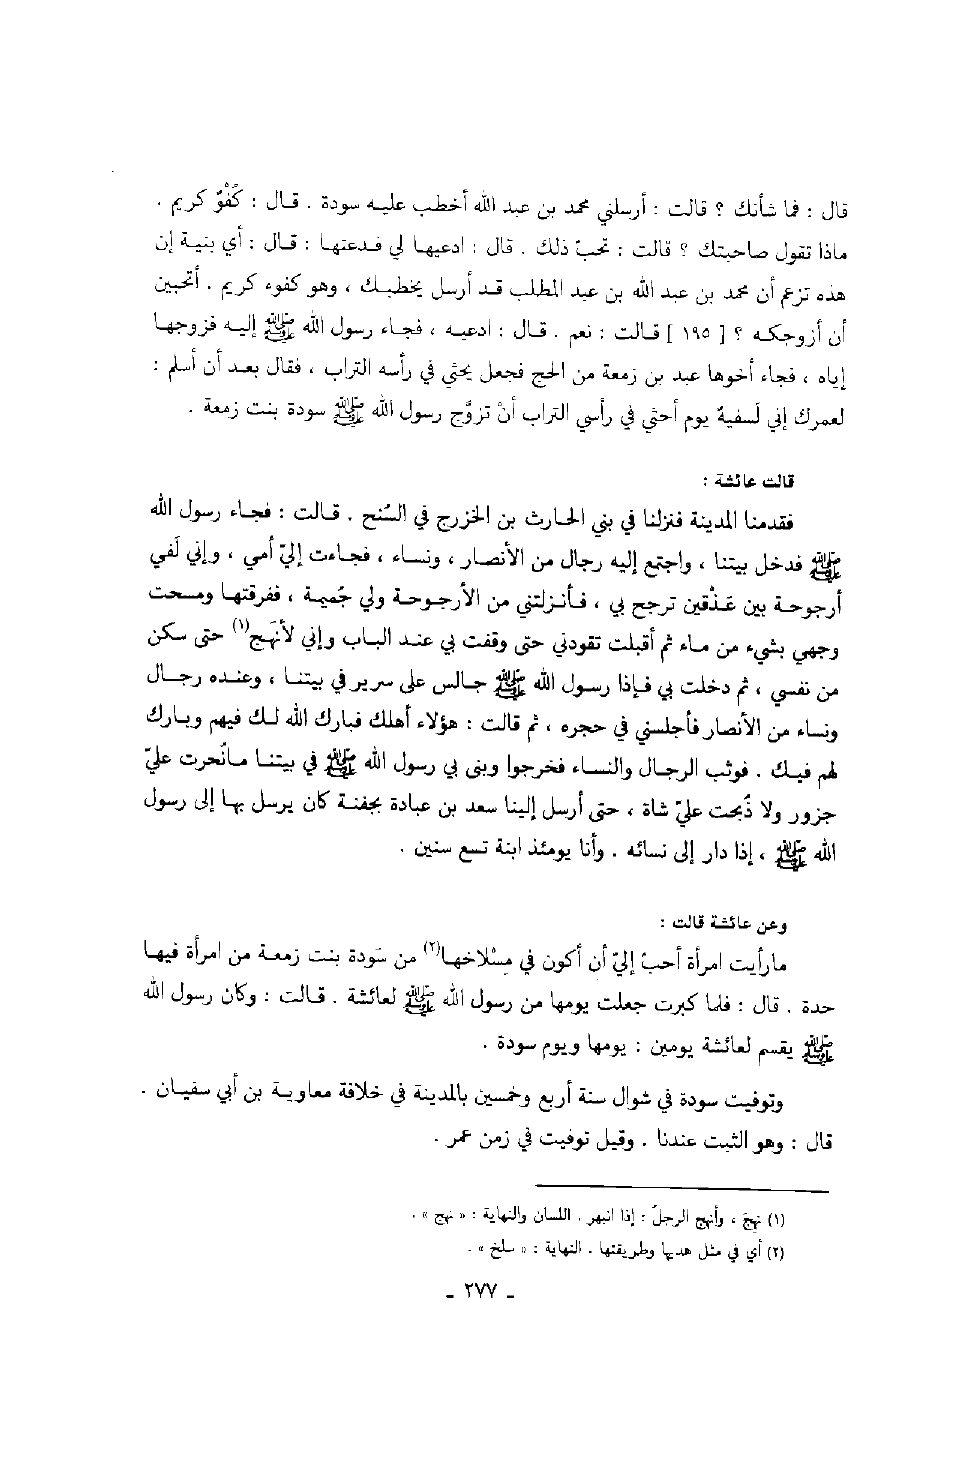 قال : فما شأنك ؟ قالت : أرسلني محمد بن عبد الله أخطب عليه سودة . قال : كُفْوٌ كريم .
ماذا تقول صاحبتك ؟ قالت : تحبّ ذلك . قال : ادعيها لي فدعتها : قال : أي بنية إن
هذه تزعم أن محمد بن عبد الله بن عبد المطلب قد أرسل يخطبك ، وهو كفوء كريم . أتحبين
أن أزوجكه ؟ [ ١٩٥ ] قالت : نعم . قال : ادعيه ، فجاء رسول الله ﷺ إليه فزوجها
إياه ، فجاء أخوها عبد بن زمعة من الحج فجعل يحثي في رأسه التراب ، فقال بعد أن أسلم :
لعمرك إني لَسفيهٌ يوم أحثي في رأسي التراب أنْ تزوَّج رسول الله ﷺ سودة بنت زمعة .
قالت عائشة :
فقدمنا المدينة فنزلنا في بني الحارث بن الخزرج في السُنح . قالت : فجاء رسول الله
ﷺ فدخل بيتنا ، واجتمع إليه رجال من الأنصار ، ونساء ، فجاءت إليّ أمي ، وإني لَفي
أرجوحة بين عَذْقين ترجح بي ، فأنزلتني من الأرجوحة ولي جُميمة ، ففرقتها ومسحت
وجهي بشيء من ماء ثم أقبلت تقودني حتى وقفت بي عند الباب وإني لأنهَج(١) حتى سكن
من نفسي ، ثم دخلت بي فإذا رسول الله ﷺ جالس على سرير في بيتنا ، وعنده رجال
ونساء من الأنصار فأجلسني في حجره ، ثم قالت : هؤلاء أهلك فبارك الله لك فيهم وبارك
لهم فيك . فوثب الرجال والنساء فخرجوا وبنى بي رسول الله ﷺ في بيتنا مانُحرت عليّ
جزور ولا ذُبحت عليّ شاة ، حتى أرسل إلينا سعد بن عبادة بجفنة كان يرسل بها إلى رسول
الله ﷺ ، إذا دار إلى نسائه . وأنا يومئذ ابنة تسع سنين .
وعن عائشة قالت :
مارأيت امرأة أحبّ إليّ أن أكون في مِسْلاخها(٢) من سَودة بنت زمعة من امرأة فيها
حدة . قال : فلما كبرت جعلت يومها من رسول الله ﷺ لعائشة . قالت : وكان رسول الله
ﷺ يقسم لعائشة يومين : يومها ويوم سودة .
وتوفيت سودة في شوال سنة أربع وخمسين بالمدينة في خلافة معاوية بن أبي سفيان .
قال : وهو الثبت عندنا . وقيل توفيت في زمن عمر .
(١) نهجَ ، وأنهج الرجلُ : إذا انبهر . اللسان والنهاية : « نهج » .
(٢) أي في مثل هديها وطريقتها . النهاية : « سلخ » .
- ٢٧٧ -